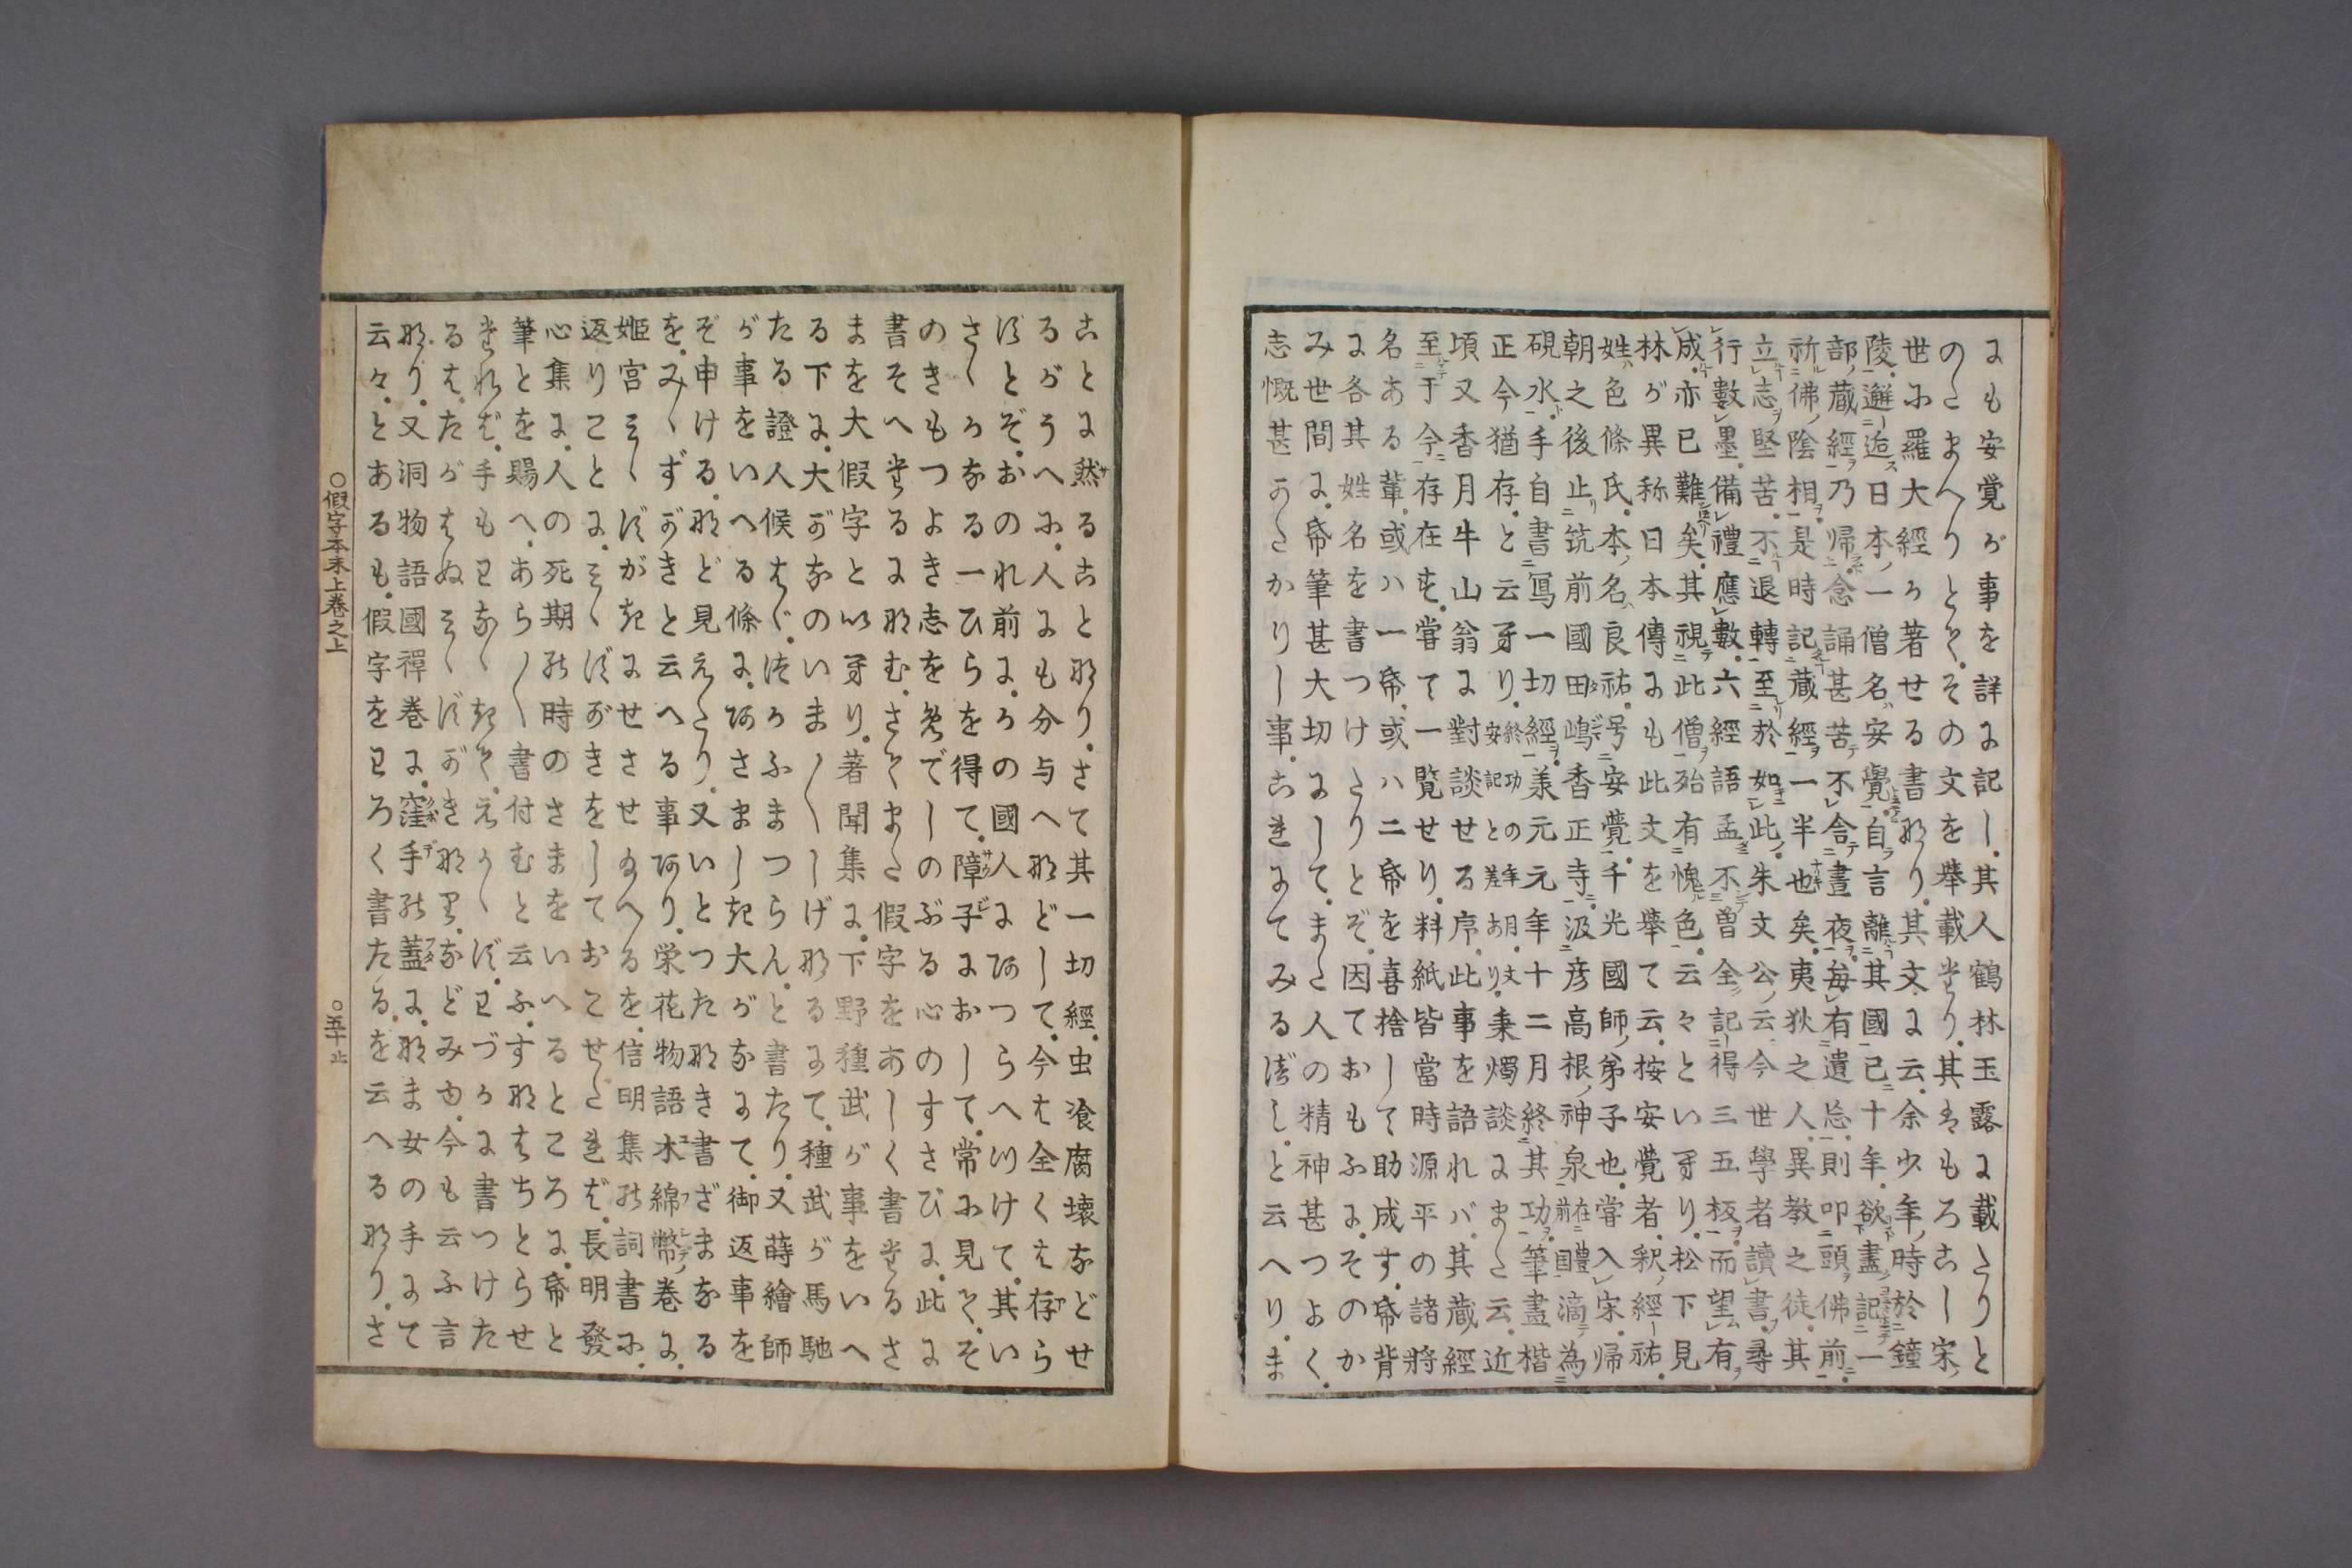 にも安覚が事を詳に記し.其人鶴林玉露に載たりと
のたまへりとぞ.その文を擧載たり.其はもろこし宋ノ
世に羅大經か著せる書なり.其文に云.余少年ノ時於鐘
陵.邂逅日本ノ一僧名ハ安覺.自言離其國已十年.欲盡記一
部ノ蔵經乃歸.念誦甚苦.不舎晝夜.毎有遺忘.則叩頭佛前.
祈佛ノ陰相.是時記蔵經一半也矣.夷狄之人異教之徒.其
立志堅苦.不退轉至於如此.朱文公ノ云.今世學者讀書.尋
行數墨.備禮應數.六經語孟不曽全記得三五板.而望有
成.亦已難矣.其視此僧殆有愧色.云々といへり.松下見
林が異称日本傳にも此文を擧て云.按安覺者.釈ノ經祐.
姓ハ色條氏.本ノ名ハ良祐.号安覺.千光國師ノ弟子也.嘗入宋.帰
朝之後止筑前國田嶋香正寺.汲彦高根ノ神泉在前體國滴為
硯水.手自書寫一切經.兼元元年十二月終其功.筆畫楷
正今猶存.と云り.安終記功との年差月あり文.秉燭談にまた云.近
頃又香月牛山翁に對談せる序.此事を語れバ.其蔵經
至于今存在す.嘗て一覧せり.料紙皆當時源平の諸将
名ある輩.或ハ一帋.或ハ二帋を喜捨して助成す.帋背
に各其姓名を書つけたりとぞ.因ておもふに.そのか
み世間に.帋筆甚大切にして.また人の精神甚つよく.
志慨甚あつかりし事.これにてみるべし.と云へり.ま
ことに然ることなり.さて其一切經.虫湌腐壊などせ
るがうへに.人にも分与へなどして.今は全くは存ら
ずとぞ.おのれ前にかの國人にあつらへつけて.其い
さゝかなる一ひらを得て.障子におして.常に見て.そ
のきもつよき志をめでしのぶる心のすさびに.此に
書そへつるになむ.さてまた假字をあしく書つるさ
まを大假字といへり.著聞集に.下野種武が事をいへ
る下に.大がなのいま〳〵しげなるにて.種武が馬馳
たる證人候はゞ.つかふまつらん.と書たり.又蒔繪師
が事をいへる條に.あさましき大がなにて.御返事を
ぞ申ける.など見えたり.又いとつたなき書ざまなる
を.みゝずがきと云へる事あり.栄花物語木綿幣ノ巻に.
姫宮みゝずがきにせさせ給へるを.信明集の詞書に.
返りことに.みゝずがきをしておこせたれば.長明發
心集に.人の死期の時のさまをいへるところに.帋と
筆とを賜へ.あら〳〵書付むと云ふ.すなはちとらせ
つれば.手もわなゝきて.えかゝず.わづかに書つけた
るは.たがはぬみゝずがきなり.などみゆ.今も云ふ言
なり.又洞物語國禪巻に.窪手の蓋に.なま女の手にて
云々.とあるも.假字をわろく書たるを云へるなり.さ
○假字本末上巻之上
○五十止